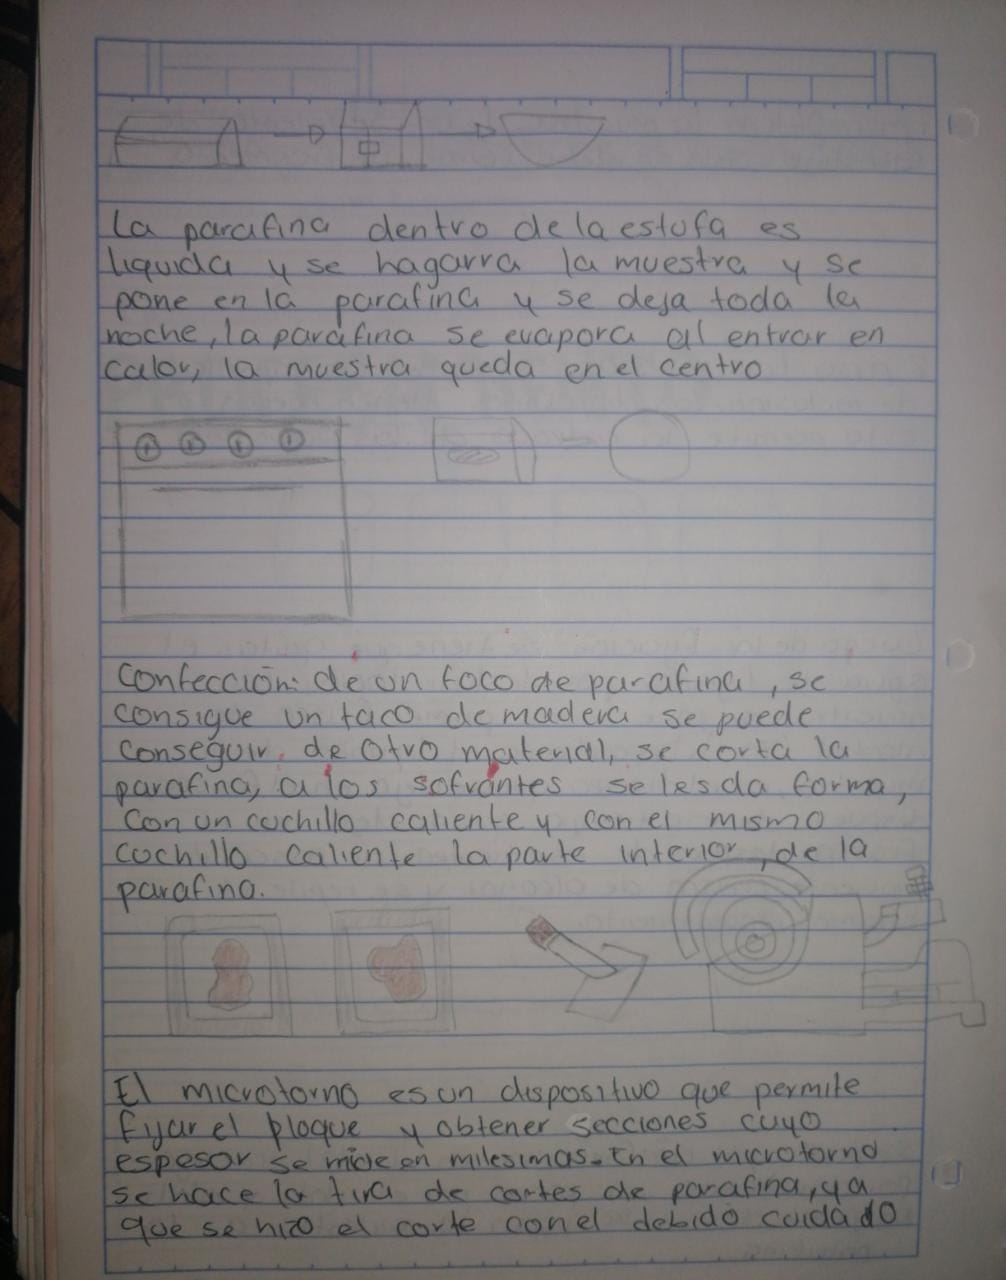 La parafina dentro de la estufa es
liquida y se hagarra la muestra y se
pone en la parafina y se deja toda la
noche, la parafina se evapora al entrar en
calor, la muestra queda en el centro
Confección: de un foco de parafina, se
consigue un taco de madera se puede
conseguir de otro material, se corta la
parafina, a los sofrantes se les da forma,
con un cuchillo caliente y con el mismo
cuchillo caliente la parte interior, de la
parafina.
El microtorno es un dispositivo que permite
fyar el bloque y obtener secciones cuyo
espesor se mide en milesimas. En el microtorno
se hace la tira de cortes de parafina, ya
que se hizo el corte con el debido cuidado